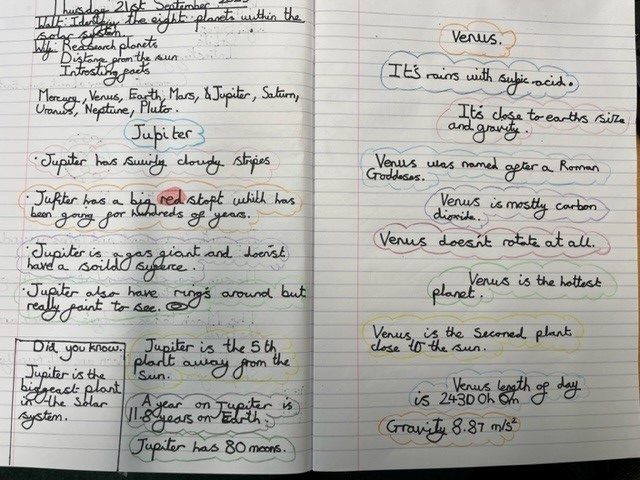 Thursday 21st September 2023
Walt: Identify the eight planets within the
solar system
Wilf: Reasearch planets
Distance from the sun
Introsting facts
Mercury, Venus, Earth, Mars, & Jupiter, Saturn,
Uranus, Neptune, Pluto.
Jupiter
· Jupiter has swirly cloudy stripes
· Jupiter has a big red stopt which has
been going for hundreds of years.
· Jupiter is a gas giant and doen'st
have a soild surface.
· Jupiter also have rings around but
really faint to see.
Did you know.
Jupiter is the
biggeast plant
in the Solar
system.
Jupiter is the 5th
plant away from the
Sun.
A year on Jupiter is
11.8 years on Earth.
Jupiter has 80 moons.
Venus.
It's rains with sufic acid.
It's close to earths size
and gravity.
Venus was named after a Roman
Goddeses.
Venus is mostly carbon
dioxide.
Venus doesn't rotate at all.
Venus is the hottest
planet.
Venus is the Seconed plant
close to the sun.
Venus length of day
is 243D 0h 0m
Gravity 8.87 m/s²